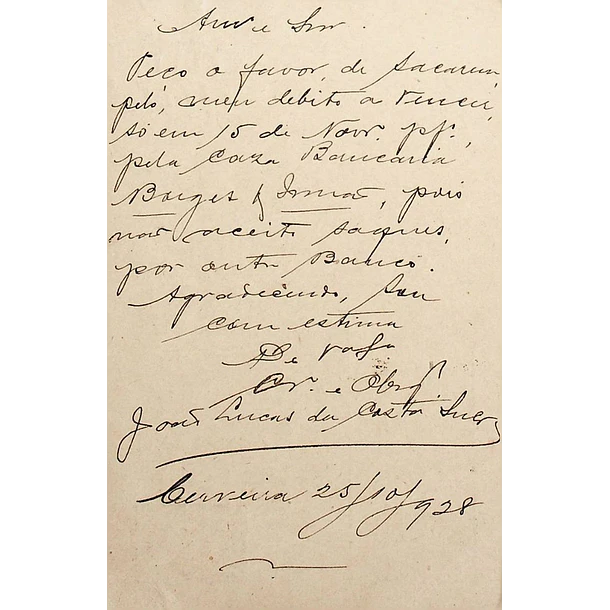 Amº e Snr.
Peço o favor, de sacarem
pelo, meu debito a vencer,
só em 15 de Novr. pfº.
pela Caza Bancaria
Borges & Irmão, pois
não aceito saques,
por outro Banco.
Agradecendo, sou
com estima
De Vas.
Cr. e Obgº.
João Lucas da Costa
Cerveira 25/10/928